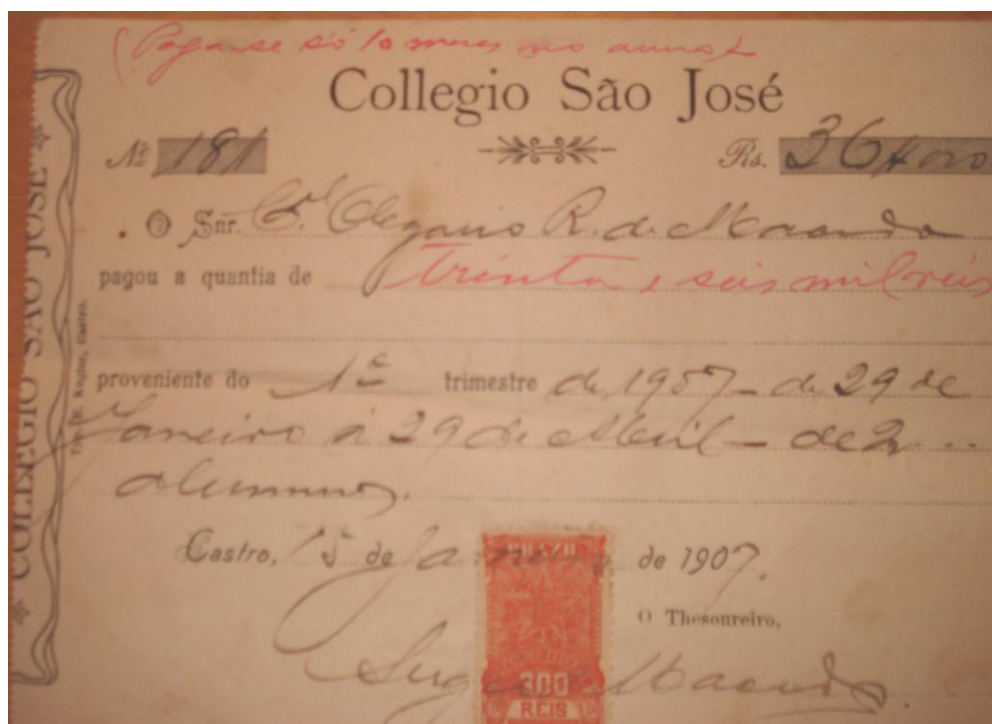 (Paga-se só 10 mezes no anno)
Collegio São José
Nº 181
Rs. 36$000
O Snr. Cel Olegario R. de Macedo
pagou a quantia de trinta e seis mil reis
proveniente do 1º trimestre de 1907 - de 29 de
Janeiro a 29 de Abril - de 2
alumnos.
Castro, 15 de Janeiro de 1907.
O Thesoureiro,
Macedo
COLLEGIO SÃO JOSÉ
BRAZIL
300
REIS